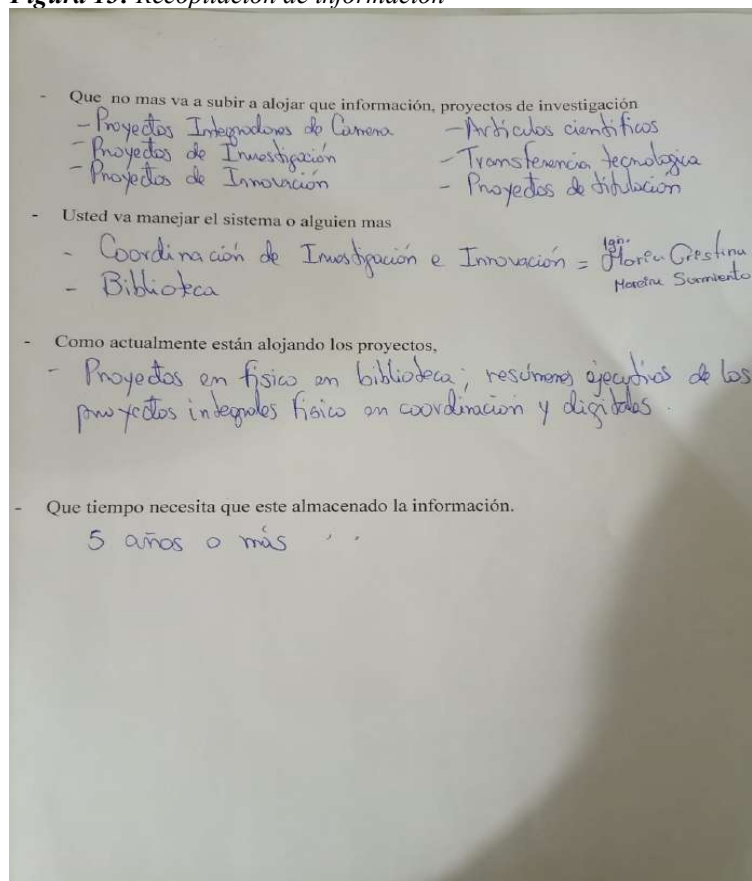 Figura 13: Recopilación de información
- Que no mas va a subir a alojar que información, proyectos de investigación
- Proyectos Integradores de Carrera
- Proyectos de Investigación
- Proyectos de Innovación
- Artículos científicos
- Transferencia tecnologica
- Proyectos de titulación
- Usted va manejar el sistema o alguien mas
- Coordinación de Investigación e Innovación = Cristina
Sarmiento
- Biblioteca
- Como actualmente están alojando los proyectos,
- Proyectos en físico en biblioteca; resúmenes ejecutivos de los
proyectos integrales físico en coordinacion y digitales.
- Que tiempo necesita que este almacenado la información.
5 años o más